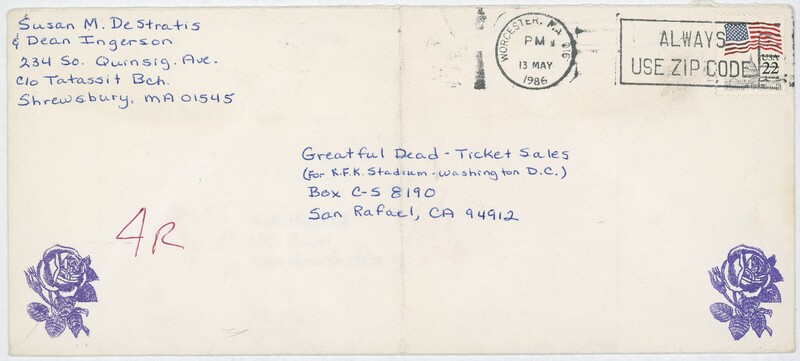 Susan M. DeStratis
& Dean Ingerson
234 So. Quinsig. Ave.
c/o Tatassit Bch.
Shrewsbury, MA 01545
WORCESTER, MA 016
PM
13 MAY
1986
ALWAYS
USE ZIP CODE
USA
22
Greatful Dead - Ticket Sales
(For R.F.K. Stadium - Washington D.C.)
Box C-S 8190
San Rafael, CA 94912
4R